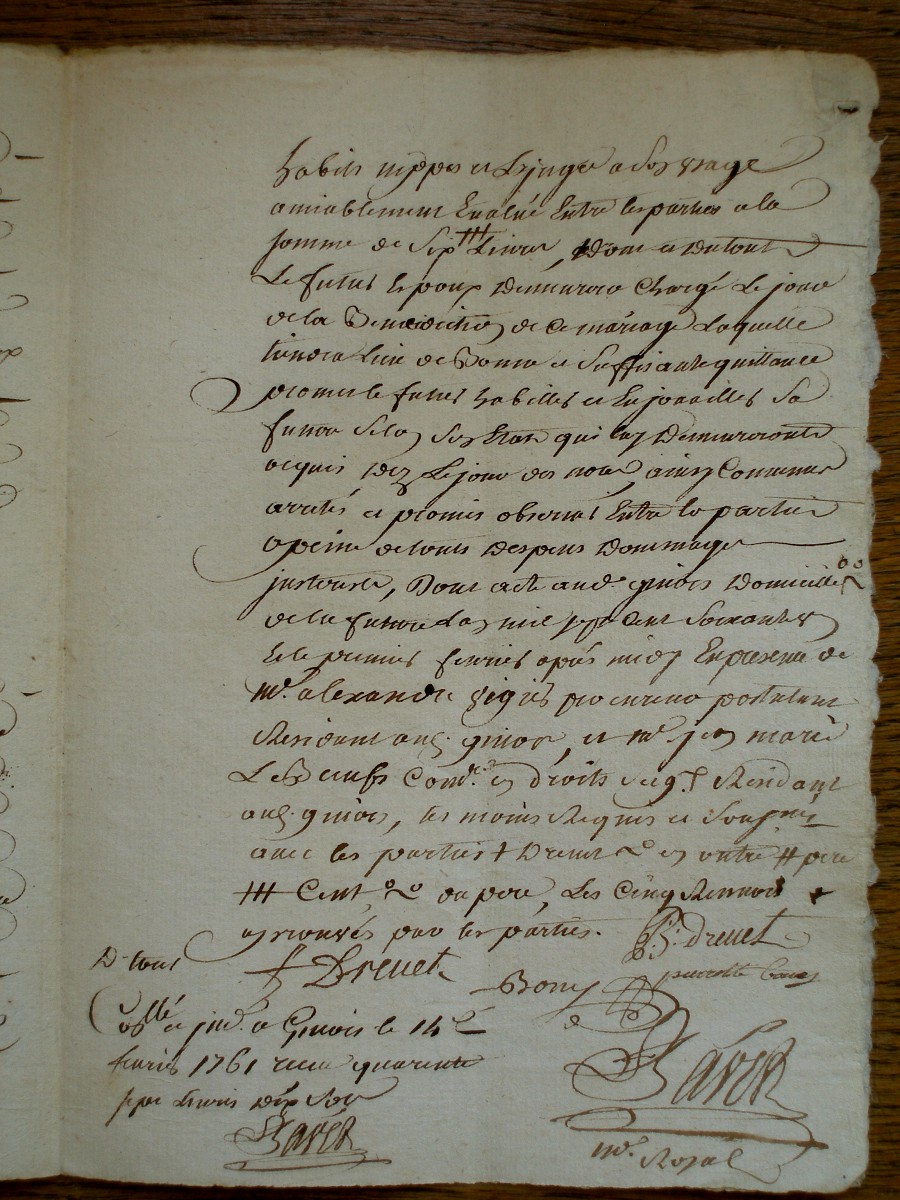 habits nippes et Linge a son usage
amiablement Evalué Entre les parties a la
somme de Sept ## Livres, Dont et Du tout
Le futur Epoux Demeurera Chargé Le jour
de la Benediction de Ce mariage Laquelle
tiendra Lieu de Bonne et Suffisante quittance
promet le futur habiller et Enjoailler Sa
future Selon Son Etat qui luy Demeureront
acquis dez Le jour des noces, ainsy Convenu
arrêté et promis observer Entre les parties
a peine de touts Despens Dommages
interests, Dont acte aud. ginois Domicille
de la future L'an mil sept Cent Soixante un
Et le premier fevrier après midy En presence de
Mr. alexandre procureur postulant
Residant aud. ginois, et Mr. jean marie
Leboeufs en droits Residant
aud. ginois, temoins Requis et Soussignés
avec les parties + Drevet en outre # pere
## Cent, ou pere, Les Cinq Renvois
aprouvés par les parties.
Drevet
+ Drevet
Bony
D tout
Collé a ginois le 14e
fevrier 1761 receu quarante
sept Livres Dix Sols
Favier
Favier
no. Royal